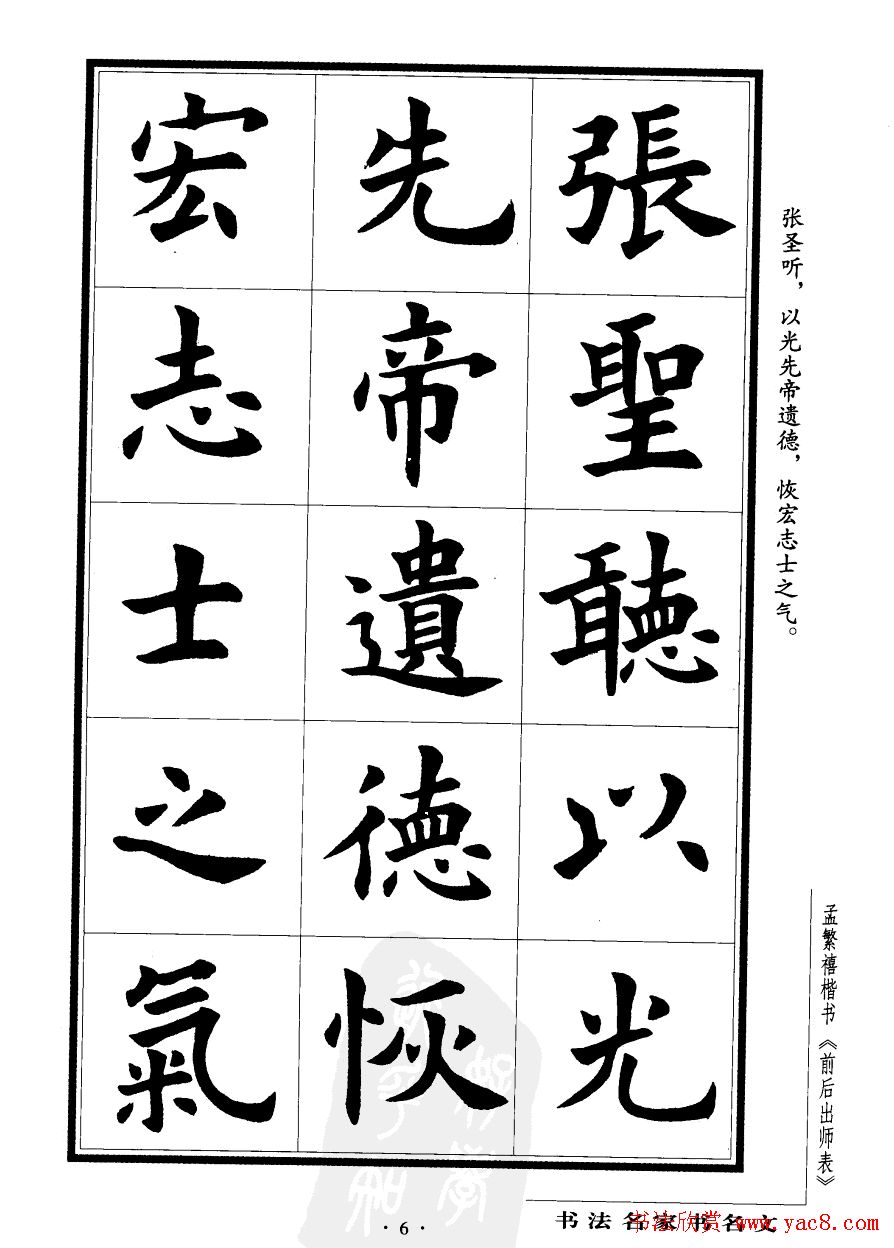 張聖聽以光
先帝遺德恢
宏志士之氣
张圣听，以光先帝遗德，恢宏志士之气。
孟繁禧楷书《前后出师表》
· 6 ·
书法名家书名文
书法欣赏www.yac8.com